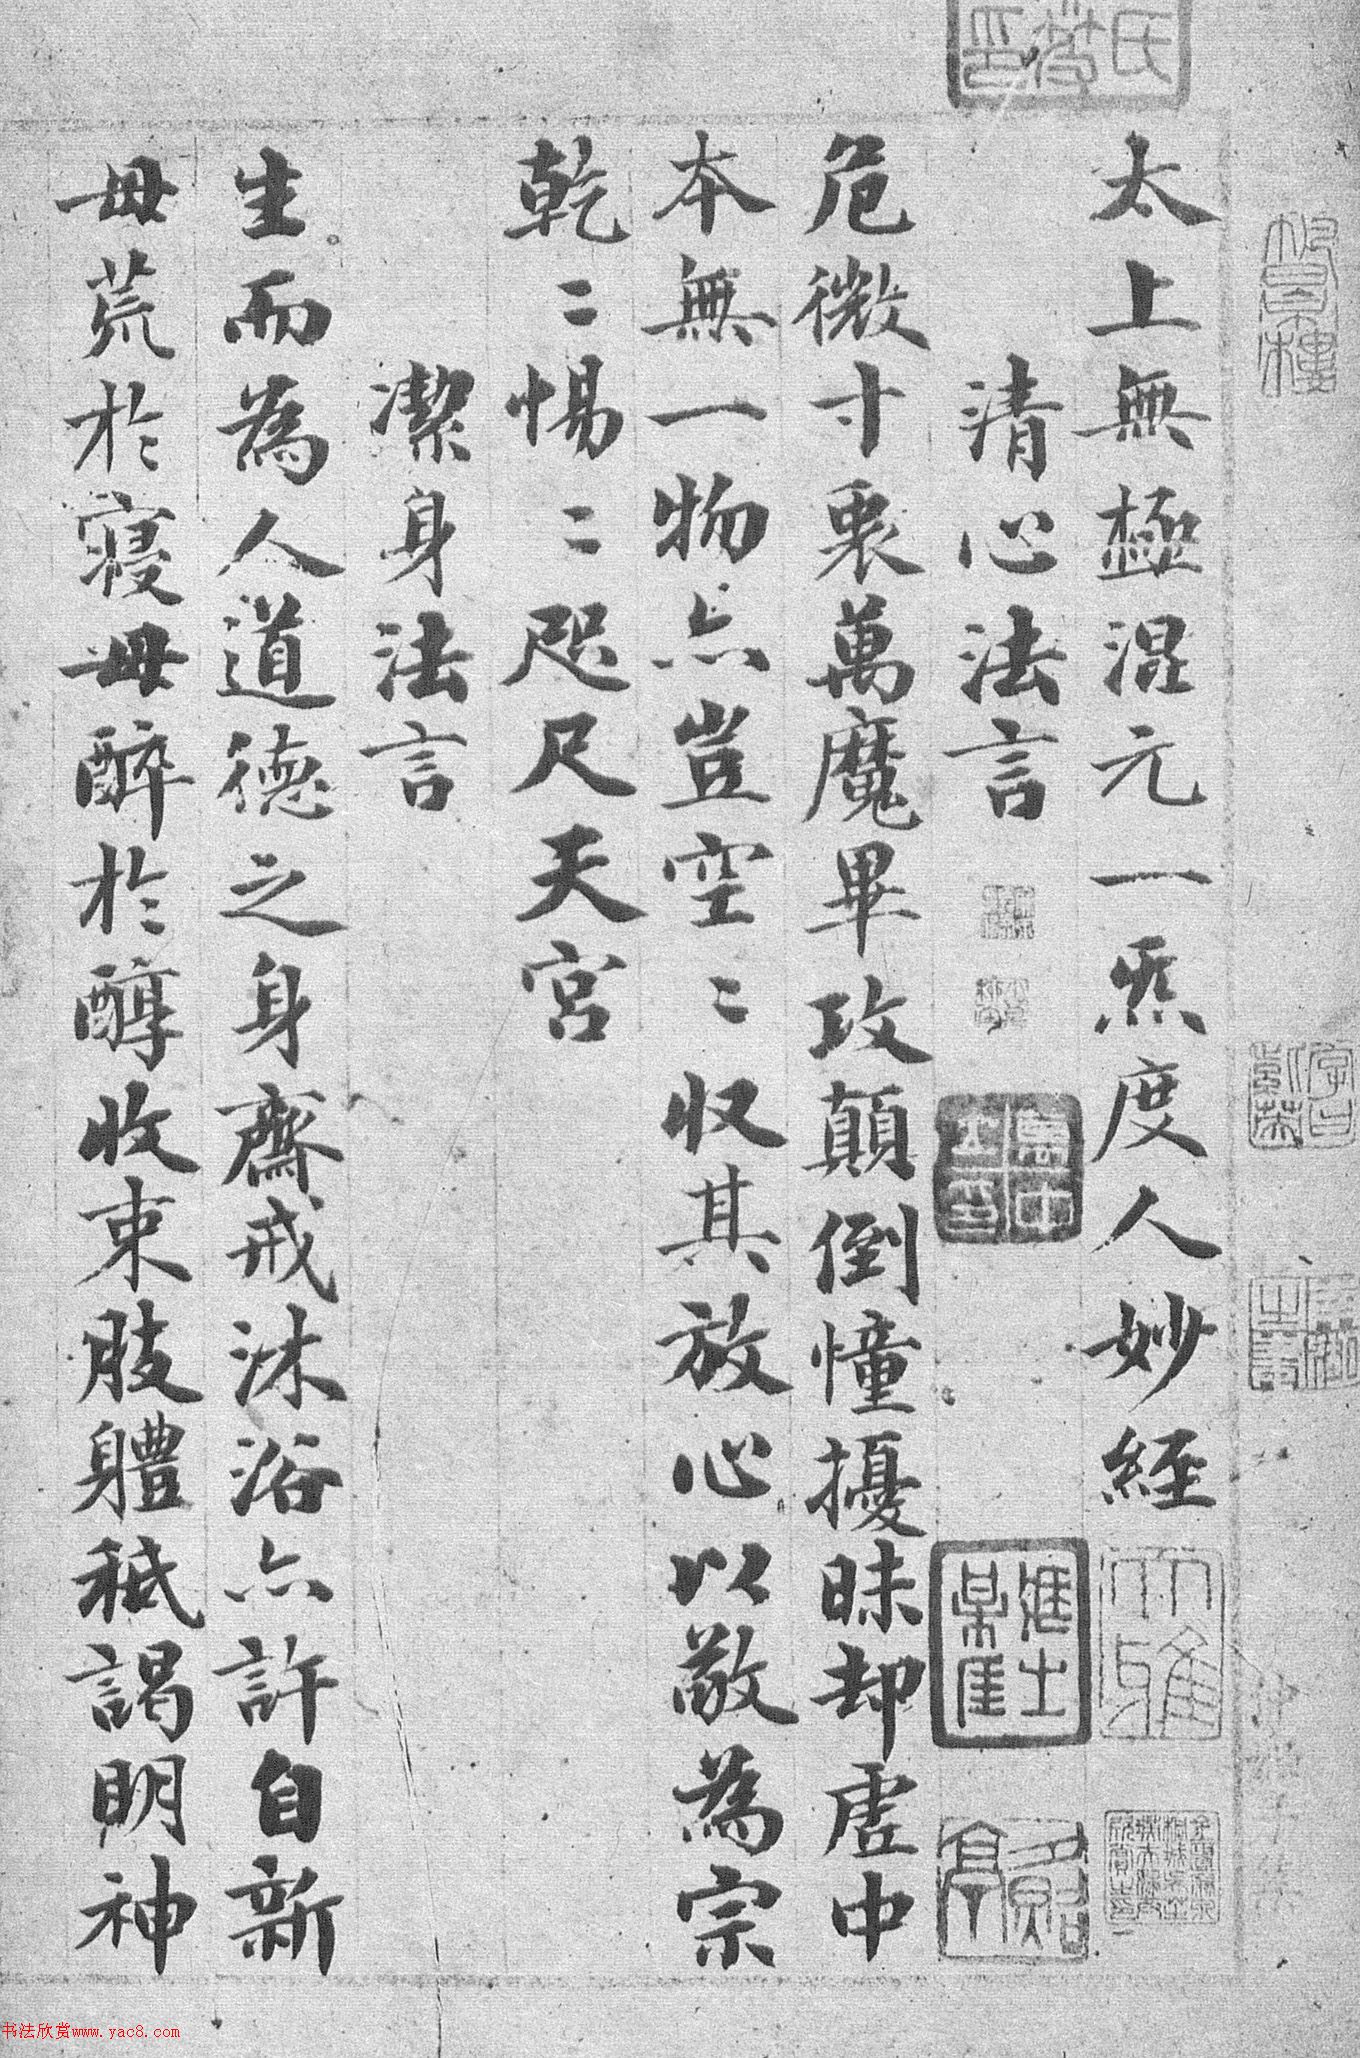 太上無極混元一炁度人妙經
清心法言
危微寸衷萬魔畢攻顛倒憧擾昧却虛中
本無一物亦豈空〻収其放心以敬為宗
乾〻惕〻咫尺天宮
潔身法言
生而為人道德之身齋戒沐浴亦許自新
毋荒於寢毋醉於醇收束肢體秪謁明神
书法欣赏www.yac8.com